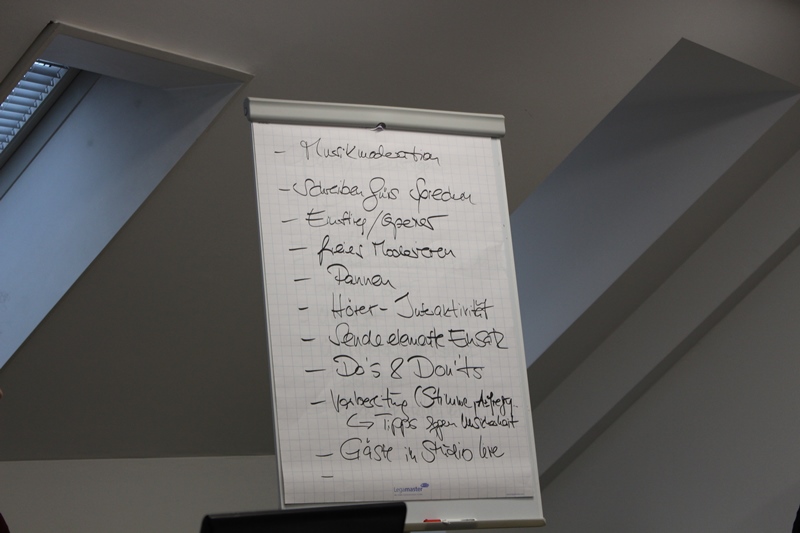 - Musikmoderation
- Schreiben fürs Sprechen
- Einstieg/Opener
- freies Moderieren
- Pannen
- Hörer-Interaktivität
- Sendeelemente Einsatz
- Do's & Don'ts
- Vorbereitung (Stimme,
↳ Tipps gegen Unsicherheit
- Gäste im Studio live
-
Legamaster